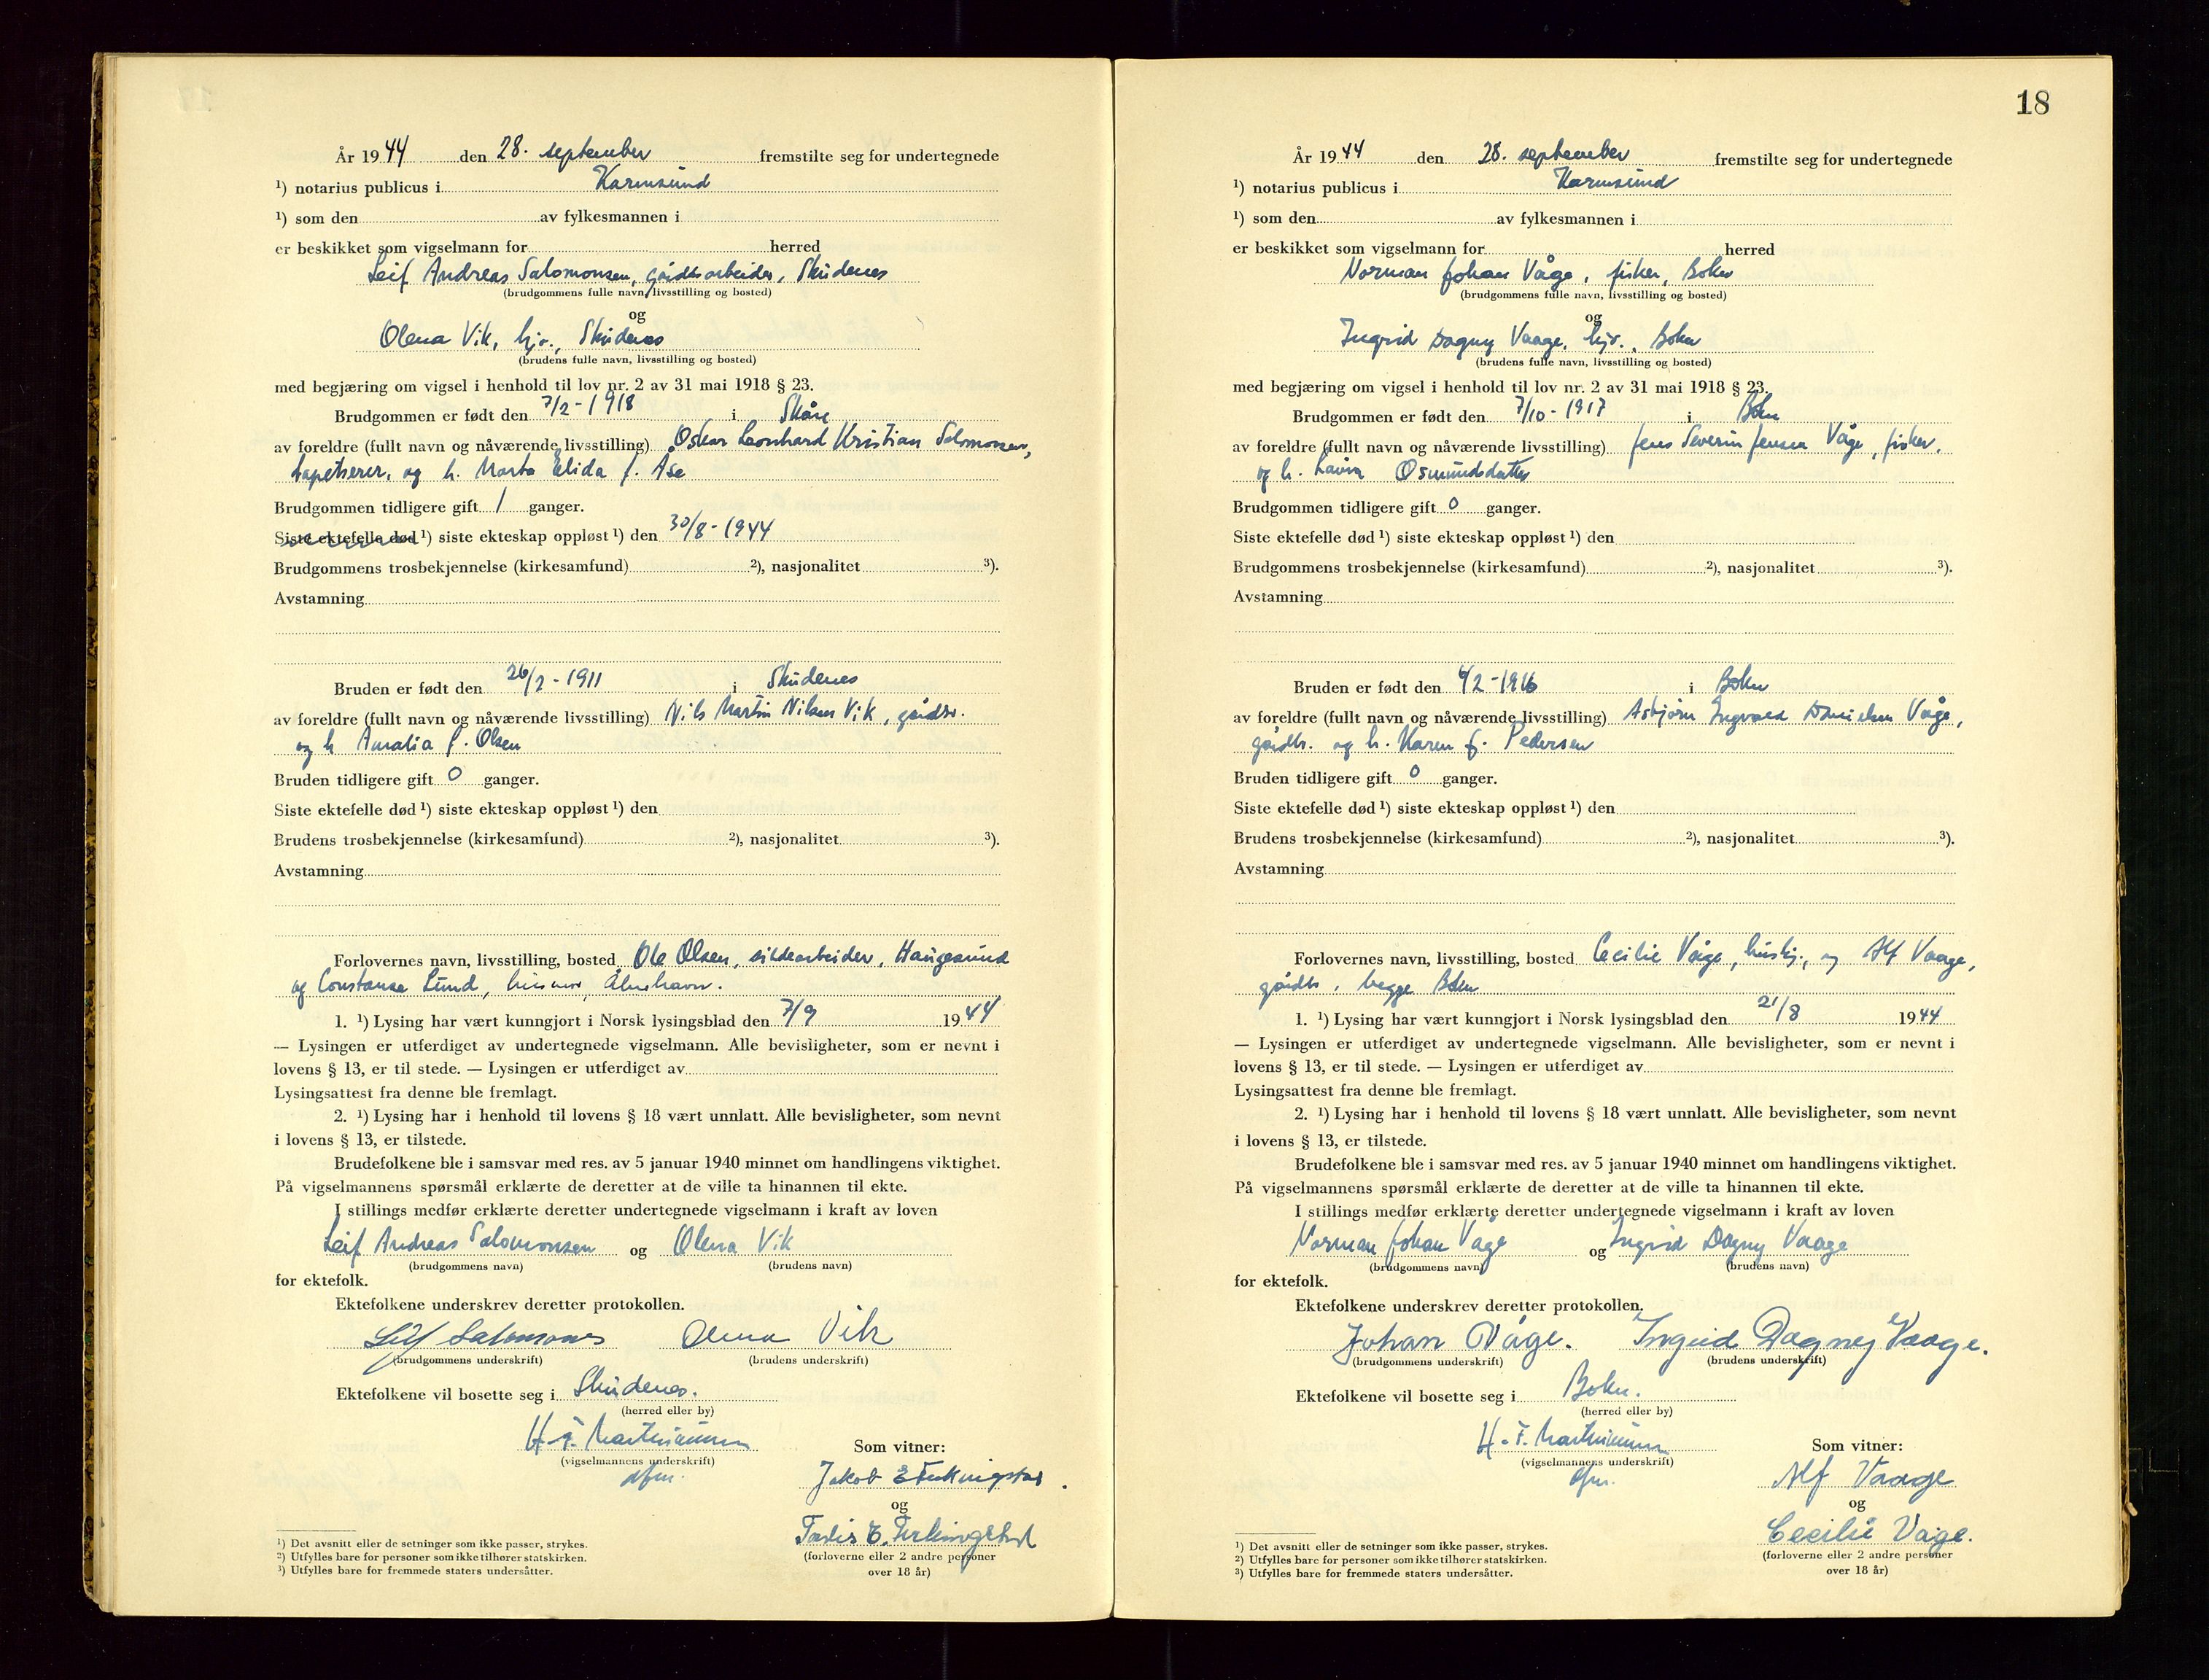 År 19 44 den 28. september fremstilte seg for undertegnede
¹) notarius publicus i Karmsund
¹) som den av fylkesmannen i
er beskikket som vigselmann for herred
Leif Andreas Salomonsen, gårdsarbeider, Skudenes
(brudgommens fulle navn, livsstilling og bosted)
og
Olena Vik, hjv., Skudenes
(brudens fulle navn, livsstilling og bosted)
med begjæring om vigsel i henhold til lov nr. 2 av 31 mai 1918 § 23.
Brudgommen er født den 7/2-1918 i Skåre
av foreldre (fullt navn og nåværende livsstilling) Oskar Leonhard Kristian Salomonsen,
tapetserer, og h. Marta Elida f. Åse
Brudgommen tidligere gift 1 ganger.
Siste ektefelle død ¹) siste ekteskap oppløst ¹) den 30/8-1944
Brudgommens trosbekjennelse (kirkesamfund) ²), nasjonalitet ³).
Avstamning
Bruden er født den 26/2-1911 i Skudenes
av foreldre (fullt navn og nåværende livsstilling) Nils Martin Nilsen Vik, gårdbr.
og h. Amalia f. Olsen
Bruden tidligere gift 0 ganger.
Siste ektefelle død ¹) siste ekteskap oppløst ¹) den
Brudens trosbekjennelse (kirkesamfund) ²), nasjonalitet ³).
Avstamning
Forlovernes navn, livsstilling, bosted Ole Olsen, sildearbeider, Haugesund
og Constanse Lund, husmor, Åkrehavn.
1. ¹) Lysing har vært kunngjort i Norsk lysingsblad den 7/9 19 44
— Lysingen er utferdiget av undertegnede vigselmann. Alle bevisligheter, som er nevnt i
lovens § 13, er til stede. — Lysingen er utferdiget av
Lysingsattest fra denne ble fremlagt.
2. ¹) Lysing har i henhold til lovens § 18 vært unnlatt. Alle bevisligheter, som nevnt
i lovens § 13, er tilstede.
Brudefolkene ble i samsvar med res. av 5 januar 1940 minnet om handlingens viktighet.
På vigselmannens spørsmål erklærte de deretter at de ville ta hinannen til ekte.
I stillings medfør erklærte deretter undertegnede vigselmann i kraft av loven
Leif Andreas Salomonsen og Olena Vik
(brudgommens navn) (brudens navn)
for ektefolk.
Ektefolkene underskrev deretter protokollen.
Leif Salomonsen Olena Vik
(brudgommens underskrift) (brudens underskrift)
Ektefolkene vil bosette seg i Skudenes.
(herred eller by)
H. F. Marthinussen
(vigselmannens underskrift)
dfm.
Som vitner:
Jakob E Ferkingstad.
og
E. Ferkingstad
(forloverne eller 2 andre personer
over 18 år)
¹) Det avsnitt eller de setninger som ikke passer, strykes.
²) Utfylles bare for personer som ikke tilhører statskirken.
³) Utfylles bare for fremmede staters undersåtter.
18
År 19 44 den 28. september fremstilte seg for undertegnede
¹) notarius publicus i Karmsund
¹) som den av fylkesmannen i
er beskikket som vigselmann for herred
Norman Johan Våge, fisker, Bokn
(brudgommens fulle navn, livsstilling og bosted)
og
Ingrid Dagny Vaage, hjv., Bokn
(brudens fulle navn, livsstilling og bosted)
med begjæring om vigsel i henhold til lov nr. 2 av 31 mai 1918 § 23.
Brudgommen er født den 7/10-1917 i Bokn
av foreldre (fullt navn og nåværende livsstilling) Jens Severin Jensen Våge, fisker,
og h. Laura Osmundsdatter
Brudgommen tidligere gift 0 ganger.
Siste ektefelle død ¹) siste ekteskap oppløst ¹) den
Brudgommens trosbekjennelse (kirkesamfund) ²), nasjonalitet ³).
Avstamning
Bruden er født den 4/2-1916 i Bokn
av foreldre (fullt navn og nåværende livsstilling) Asbjørn Ingvald Danielsen Våge,
gårdbr. og h. Karen f. Pedersen
Bruden tidligere gift 0 ganger.
Siste ektefelle død ¹) siste ekteskap oppløst ¹) den
Brudens trosbekjennelse (kirkesamfund) ²), nasjonalitet ³).
Avstamning
Forlovernes navn, livsstilling, bosted Cecilie Våge, hushj., og Alf Vaage,
gårdbr., begge Bokn
1. ¹) Lysing har vært kunngjort i Norsk lysingsblad den 21/8 19 44
— Lysingen er utferdiget av undertegnede vigselmann. Alle bevisligheter, som er nevnt i
lovens § 13, er til stede. — Lysingen er utferdiget av
Lysingsattest fra denne ble fremlagt.
2. ¹) Lysing har i henhold til lovens § 18 vært unnlatt. Alle bevisligheter, som nevnt
i lovens § 13, er tilstede.
Brudefolkene ble i samsvar med res. av 5 januar 1940 minnet om handlingens viktighet.
På vigselmannens spørsmål erklærte de deretter at de ville ta hinannen til ekte.
I stillings medfør erklærte deretter undertegnede vigselmann i kraft av loven
Norman Johan Våge og Ingrid Dagny Vaage
(brudgommens navn) (brudens navn)
for ektefolk.
Ektefolkene underskrev deretter protokollen.
Johan Våge. Ingrid Dagny Vaage.
(brudgommens underskrift) (brudens underskrift)
Ektefolkene vil bosette seg i Bokn.
(herred eller by)
H. F. Marthinussen
(vigselmannens underskrift)
dfm.
Som vitner:
Alf Vaage
og
Cecilie Våge.
(forloverne eller 2 andre personer
over 18 år)
¹) Det avsnitt eller de setninger som ikke passer, strykes.
²) Utfylles bare for personer som ikke tilhører statskirken.
³) Utfylles bare for fremmede staters undersåtter.